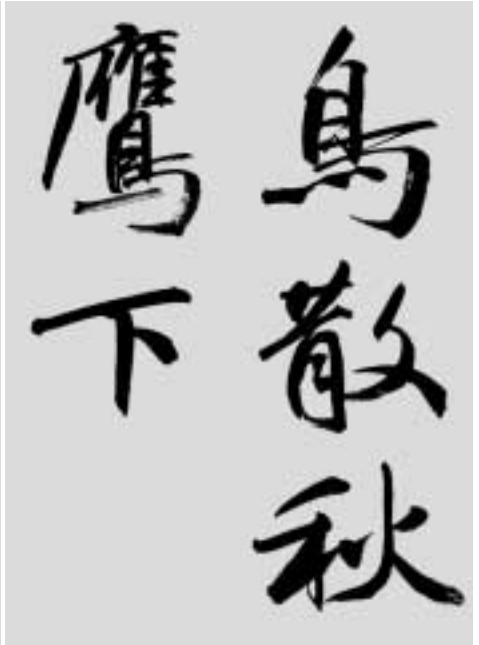 鳥散秋
鷹下